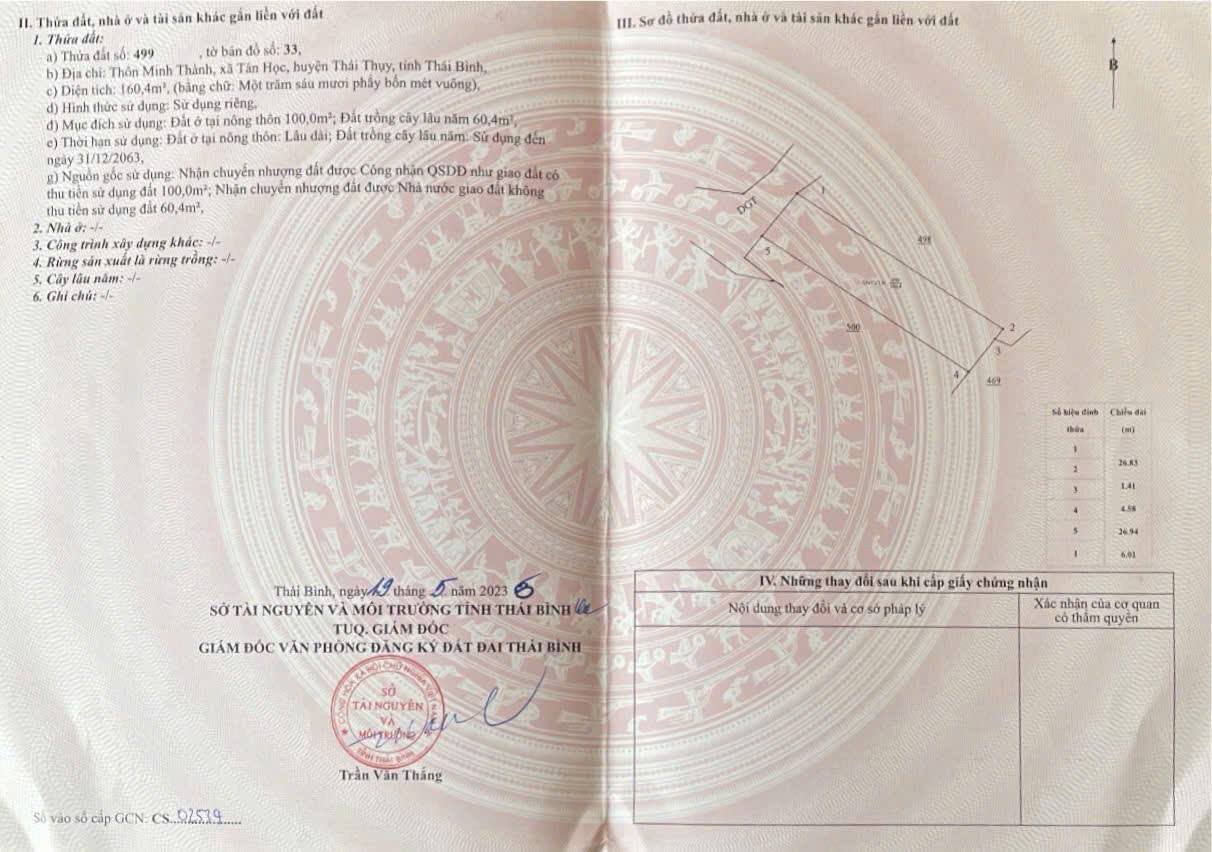 II. Thửa đất, nhà ở và tài sản khác gắn liền với đất
1. Thửa đất:
a) Thửa đất số: 499 , tờ bản đồ số: 33,
b) Địa chỉ: Thôn Minh Thành, xã Tân Học, huyện Thái Thụy, tỉnh Thái Bình,
c) Diện tích: 160,4m², (bằng chữ: Một trăm sáu mươi phẩy bốn mét vuông),
d) Hình thức sử dụng: Sử dụng riêng,
đ) Mục đích sử dụng: Đất ở tại nông thôn 100,0m²; Đất trồng cây lâu năm 60,4m²,
e) Thời hạn sử dụng: Đất ở tại nông thôn: Lâu dài; Đất trồng cây lâu năm: Sử dụng đến
ngày 31/12/2063,
g) Nguồn gốc sử dụng: Nhận chuyển nhượng đất được Công nhận QSDĐ như giao đất có
thu tiền sử dụng đất 100,0m²; Nhận chuyển nhượng đất được Nhà nước giao đất không
thu tiền sử dụng đất 60,4m²,
2. Nhà ở: -/-
3. Công trình xây dựng khác: -/-
4. Rừng sản xuất là rừng trồng: -/-
5. Cây lâu năm: -/-
6. Ghi chú: -/-
Thái Bình, ngày 19 tháng 5 năm 2023
SỞ TÀI NGUYÊN VÀ MÔI TRƯỜNG TỈNH THÁI BÌNH
TUQ. GIÁM ĐỐC
GIÁM ĐỐC VĂN PHÒNG ĐĂNG KÝ ĐẤT ĐAI THÁI BÌNH
CỘNG HÒA XÃ HỘI CHỦ NGHĨA VIỆT NAM
SỞ
TÀI NGUYÊN
VÀ
MÔI TRƯỜNG
TỈNH THÁI BÌNH
Trần Văn Thắng
Số vào sổ cấp GCN: CS 02539
III. Sơ đồ thửa đất, nhà ở và tài sản khác gắn liền với đất
B
ĐGT
1
498
5
500
2
3
4
469
Số hiệu đỉnh thửa Chiều dài (m)
1
26.83
2
1.41
3
4.58
4
26.94
5
6.01
1
IV. Những thay đổi sau khi cấp giấy chứng nhận
Nội dung thay đổi và cơ sở pháp lý
Xác nhận của cơ quan
có thẩm quyền